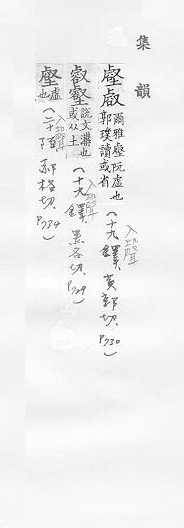 集韻
壑㕡 爾雅壑阬虛也郭璞讀或省 (十九鐸, 黃郭切, P730) 入聲
㕡壑 說文溝也或从土 (十九鐸, 黑各切, P729) 入聲
壑 虛也 (二十陌, 郝格切, P734) 入聲